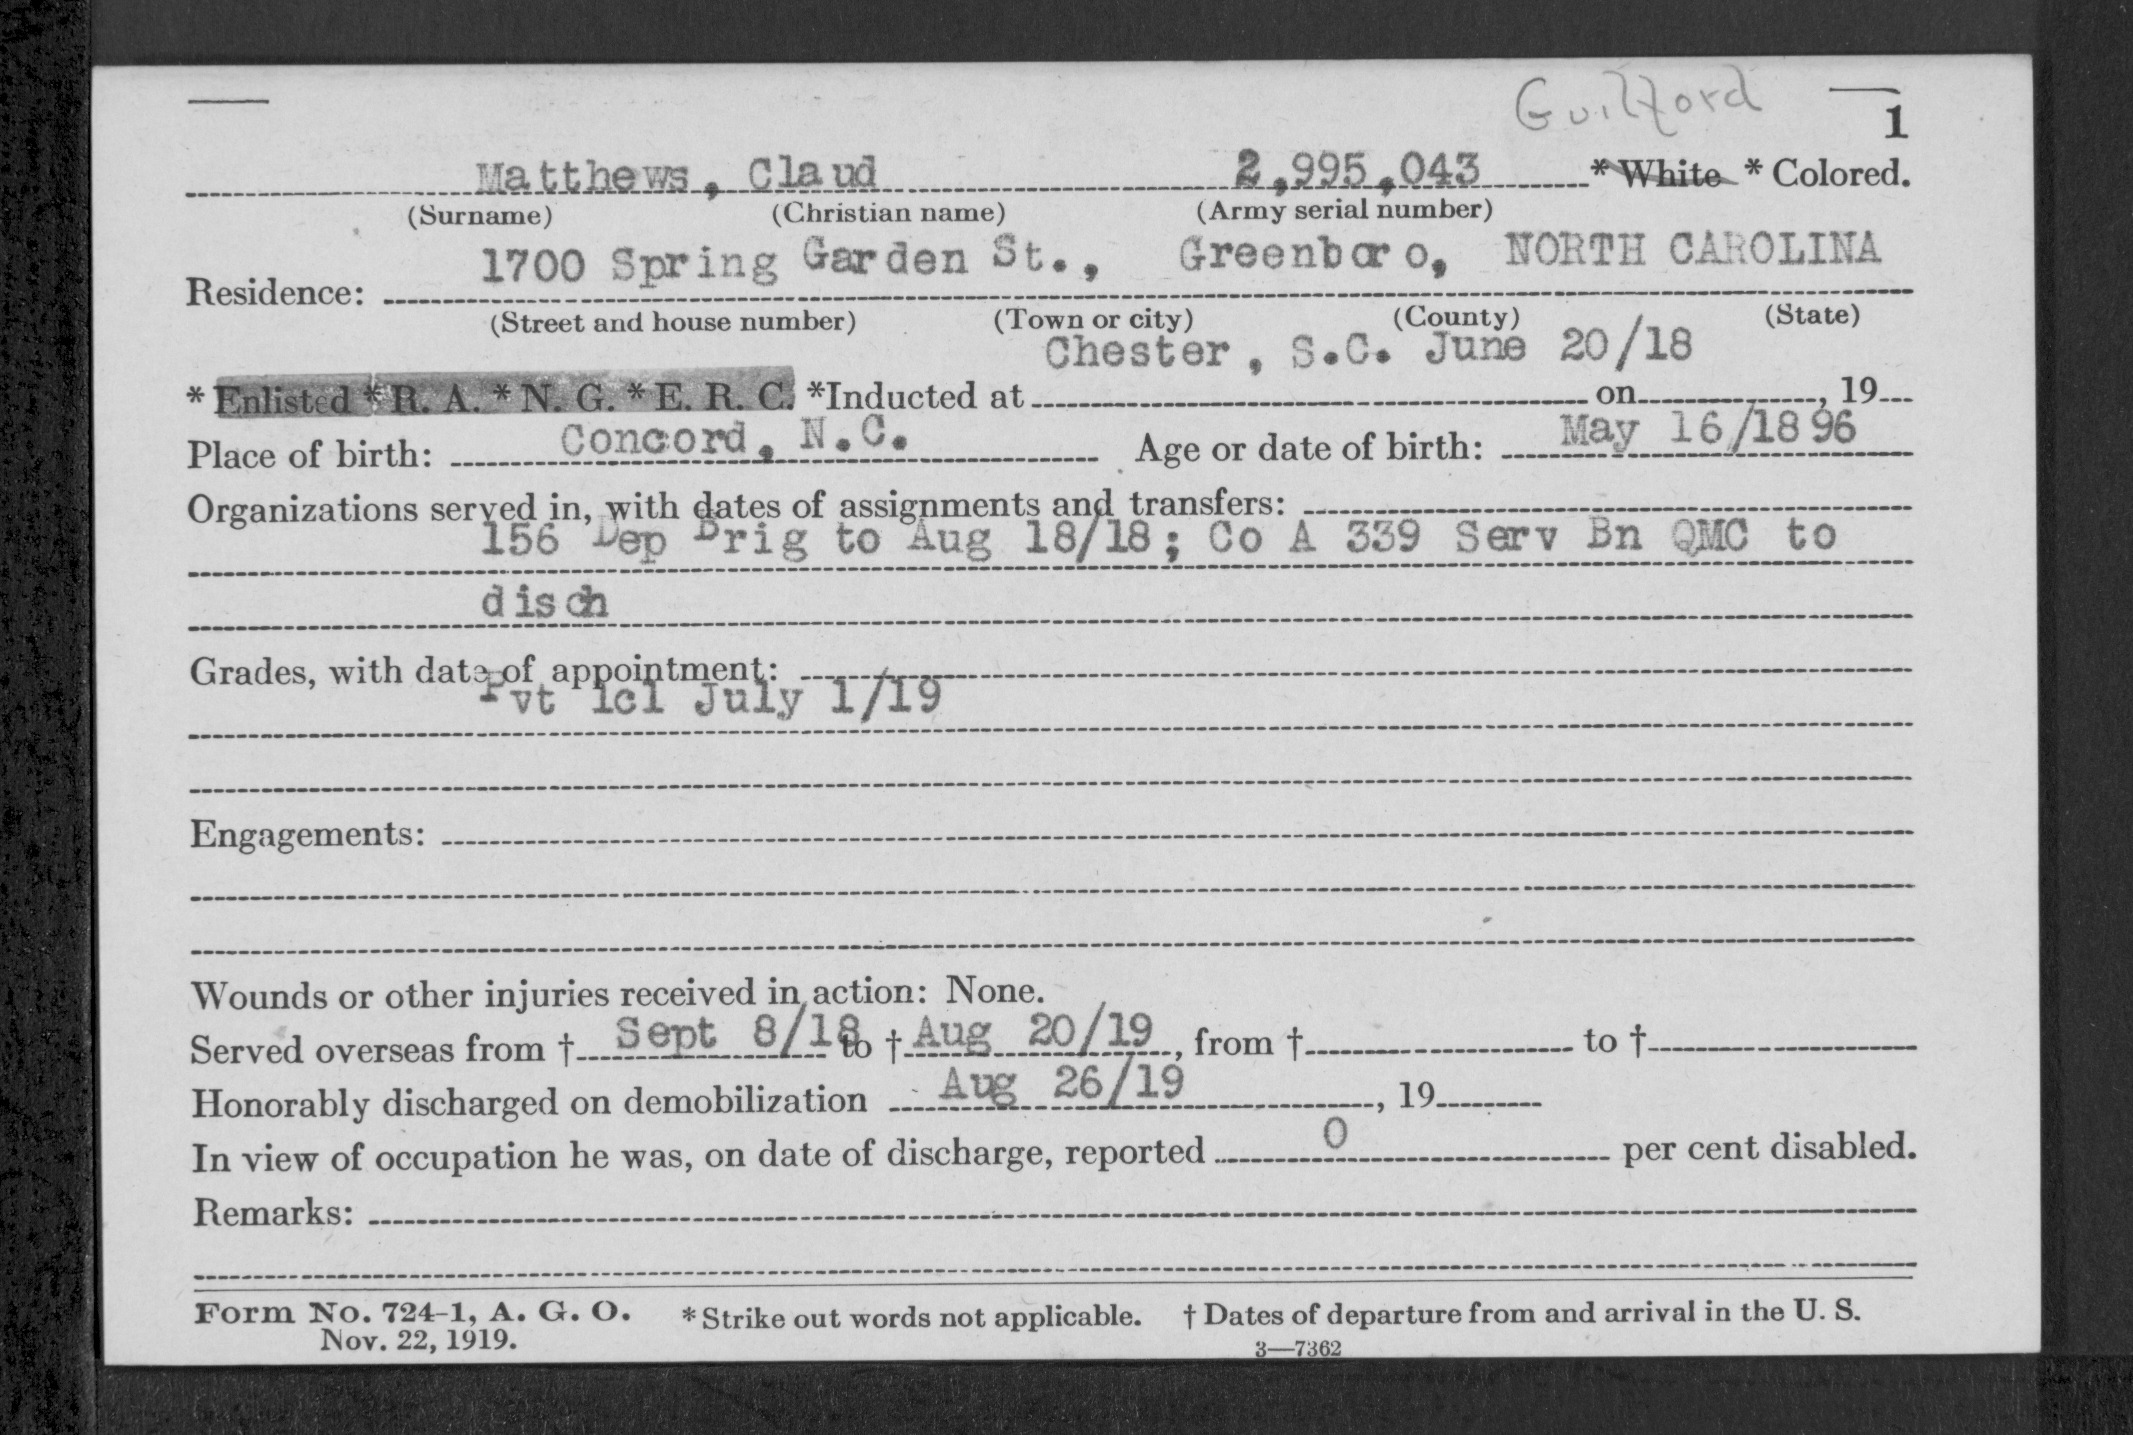 Guilford
1
Matthews, Claud 2,995,043 * White * Colored.
(Surname) (Christian name) (Army serial number)
1700 Spring Garden St., Greenboro, NORTH CAROLINA
Residence:
(Street and house number) (Town or city) (County) (State)
Chester, S.C. June 20/18
* Enlisted * R. A. * N. G. * E. R. C. *Inducted at on , 19
Place of birth: Concord, N.C. Age or date of birth: May 16/1896
Organizations served in, with dates of assignments and transfers:
156 Dep Brig to Aug 18/18; Co A 339 Serv Bn QMC to
disch
Grades, with date of appointment:
Pvt 1cl July 1/19
Engagements:
Wounds or other injuries received in action: None.
Served overseas from † Sept 8/18 to † Aug 20/19, from † to †
Honorably discharged on demobilization Aug 26/19 , 19
In view of occupation he was, on date of discharge, reported 0 per cent disabled.
Remarks:
Form No. 724-1, A. G. O. * Strike out words not applicable. † Dates of departure from and arrival in the U. S.
Nov. 22, 1919. 3—7362